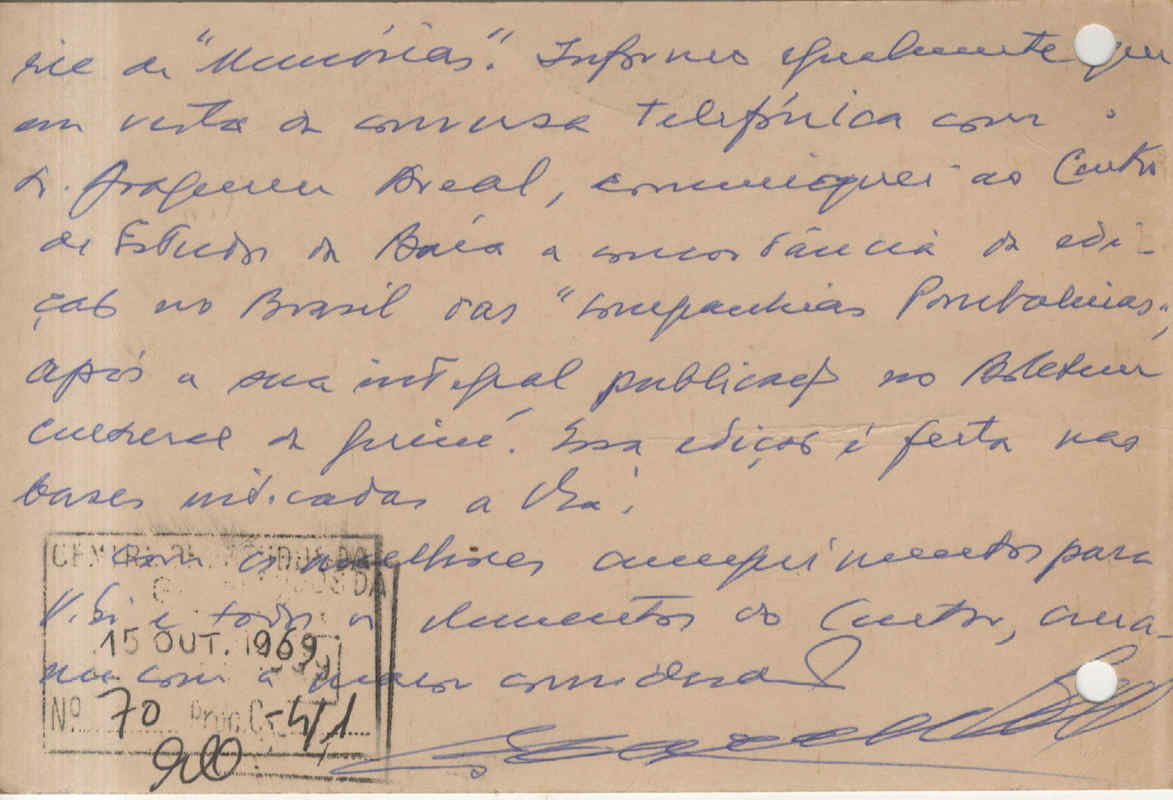 rie de "Memórias". Informo igualmente que
em vista da conversa telefónica com o
Dr. Breal, comuniquei ao Centro
de Estudos da Baía a concordância da edi-
ção no Brasil das "Companhias Pombalinas",
após a sua integral publicação no Boletim
Cultural da Guiné. Essa edição é feita nas
bases indicadas a V. Exa.
Com os melhores cumprimentos para
V. Exa. e todos os elementos do Centro,
com a maior consideração
CENTRO DE ESTUDOS DA
15 OUT. 1969
Nº 70 Proc. C-4/1